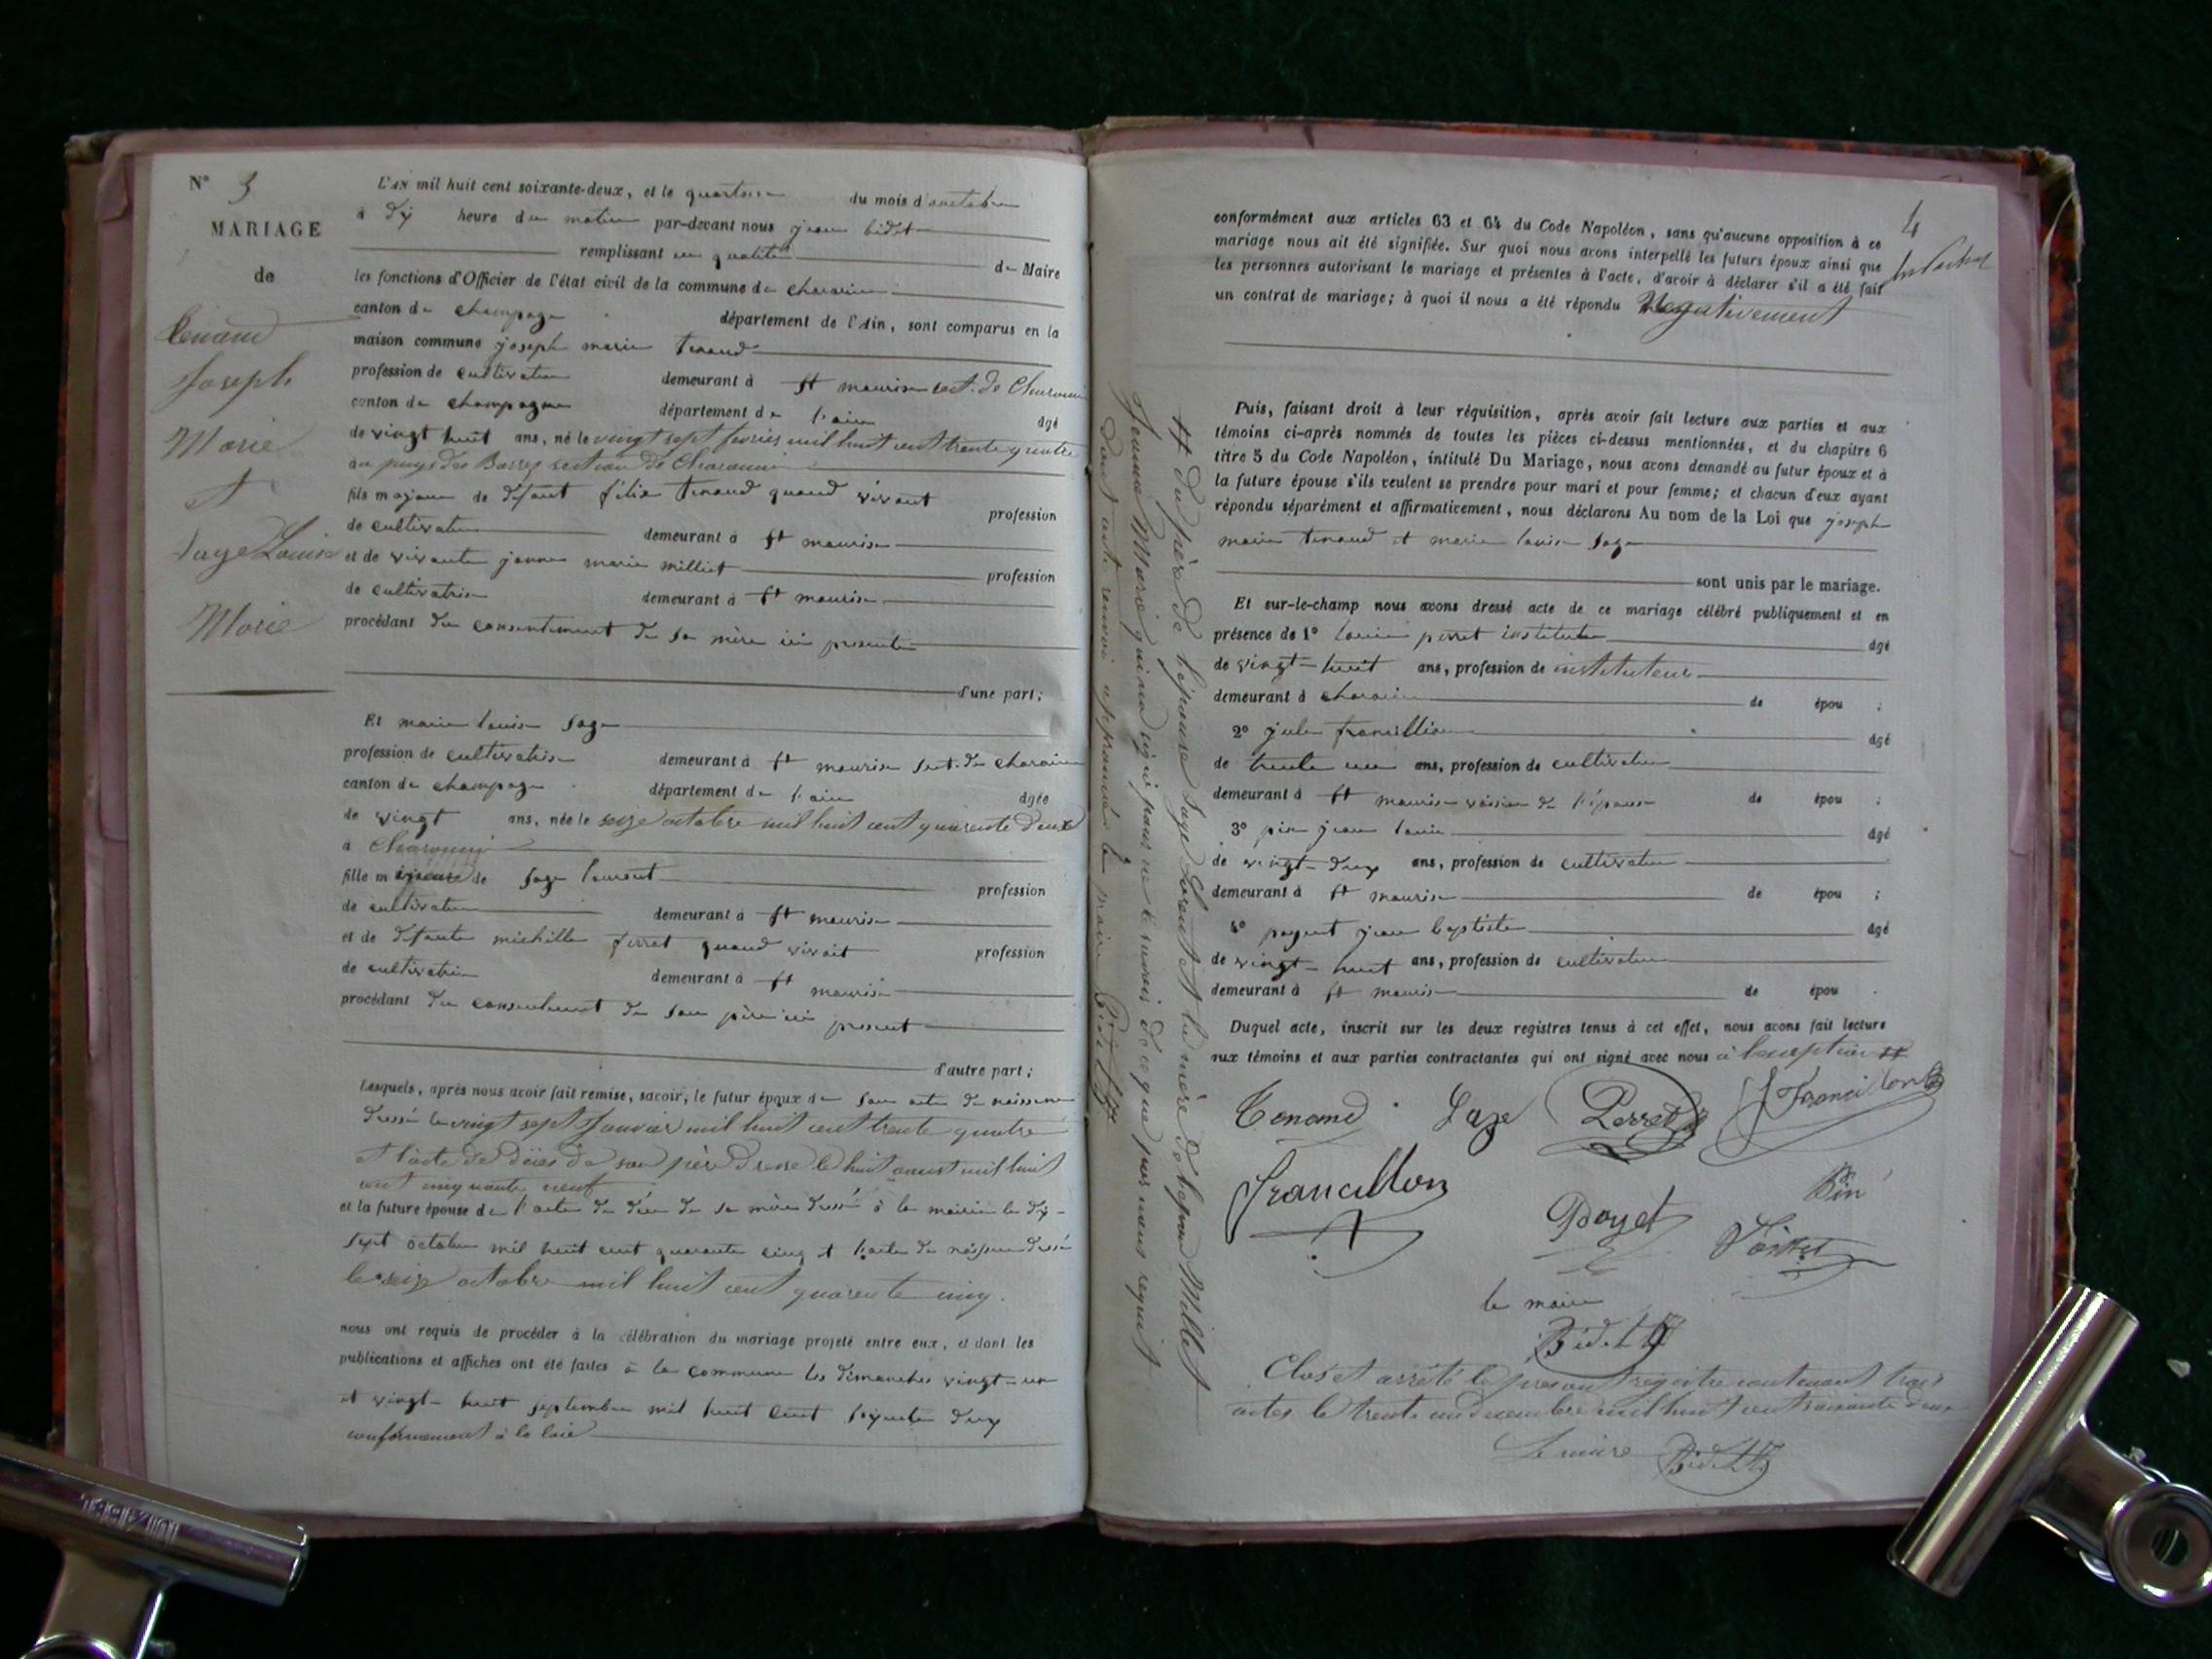 N° 3
MARIAGE
de
Tenand
Joseph
Marie
et
Sage Louise
Marie
L'AN mil huit cent soixante-deux, et le quatorze du mois d'octobre
à dix heure du matin par-devant nous jean bidet
remplissant en qualité de Maire
les fonctions d'Officier de l'état civil de la commune de
canton de champagne département de l'Ain, sont comparus en la
maison commune joseph marie tenand
profession de cultivateur demeurant à st maurice sect. de
canton de champagne département de l'ain âgé
de vingt huit ans, né le vingt sept février mil huit cent trente quatre
au section de
fils majeur de défunt félix tenand quand vivant profession
de cultivateur demeurant à st maurice
et de vivante jeanne marie milliet profession
de cultivatrice demeurant à st maurice
procédant du consentement de sa mère ici presente
d'une part;
Et marie louise sage
profession de cultivatrice demeurant à st maurice sect. de
canton de champagne département de l'ain âgée
de vingt ans, née le seize octobre mil huit cent quarente deux
à
fille mineure de sage laurent profession
de cultivateur demeurant à st maurice
et de défunte michelle quand vivait profession
de cultivatrice demeurant à st maurice
procédant du consentement de son père ici present
d'autre part;
Lesquels, après nous avoir fait remise, savoir, le futur époux de son acte de naissance
dressé le vingt sept Janvier mil huit cent trente quatre
et l'acte de décès de son père dressé le huit aoust mil huit
cent cinquante neuf
et la future épouse de l'acte de décès de sa mère dressé à la mairie le dix-
sept octobre mil huit cent quarante cinq et l'acte de naissance dressé
le seize octobre mil huit cent quarente cinq.
nous ont requis de procéder à la célébration du mariage projeté entre eux, et dont les
publications et affiches ont été faites à la commune les dimanches vingt-un
et vingt-huit septembre mil huit cent soixante deux
conformement à la loie
4
conformément aux articles 63 et 64 du Code Napoléon, sans qu'aucune opposition à ce
mariage nous ait été signifiée. Sur quoi nous avons interpellé les futurs époux ainsi que
les personnes autorisant le mariage et présentes à l'acte, d'avoir à déclarer s'il a été fait
un contrat de mariage; à quoi il nous a été répondu Negativement
Puis, faisant droit à leur réquisition, après avoir fait lecture aux parties et aux
témoins ci-après nommés de toutes les pièces ci-dessus mentionnées, et du chapitre 6
titre 5 du Code Napoléon, intitulé Du Mariage, nous avons demandé au futur époux et à
la future épouse s'ils veulent se prendre pour mari et pour femme; et chacun d'eux ayant
répondu séparément et affirmativement, nous déclarons Au nom de la Loi que joseph
marie tenand et marie louise sage
sont unis par le mariage.
Et sur-le-champ nous avons dressé acte de ce mariage célébré publiquement et en
présence de 1° louis perret instituteur âgé
de vingt-huit ans, profession de instituteur
demeurant à de épou ;
2° jules francillion âgé
de trente un ans, profession de cultivateur
demeurant à st maurice voisin de l'épouse de épou ;
3° pin jean louis âgé
de vingt-deux ans, profession de cultivateur
demeurant à st maurice de épou ;
4° jean baptiste âgé
de vingt-huit ans, profession de cultivateur
demeurant à st maurice de épou .
Duquel acte, inscrit sur les deux registres tenus à cet effet, nous avons fait lecture
aux témoins et aux parties contractantes qui ont signé avec nous à l'exception #
Tenand Sage Perret J Francillon
Francillon Poyet Pin
le maire
Bidet
Clos et arrêté le present registre contenant trois
actes le trente un decembre mil huit cent soixante deux
Le maire Bidet
# du père de l'épouse Sage Laurent et la mère de l'époux Millet
Jeanne Marie qui n'ont signé pour ne le savoir de ce que par nous requis
dont acte renvoi approuvé le maire Bidet